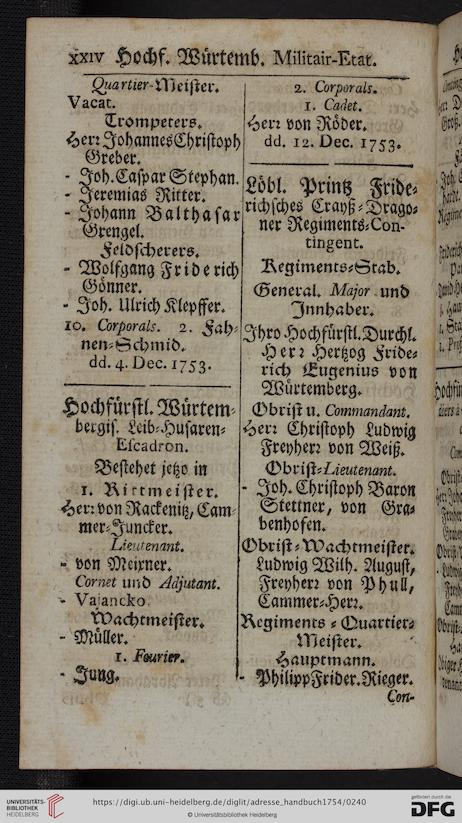 xxiv Hochf. Würtemb. Militair-Etat.
Quartier-Meister.
Vacat.
Trompeters.
Herr Johannes Christoph
Greber.
- Joh. Caspar Stephan.
- Jeremias Ritter.
- Johann Balthasar
Grengel.
Feldscherers.
- Wolfgang Friderich
Gönner.
- Joh. Ulrich Klepffer.
10. Corporals. 2. Fah-
nen-Schmid.
dd. 4. Dec. 1753.
Hochfürstl. Würtem-
bergis. Leib-Husaren-
Escadron.
Bestehet jetzo in
1. Rittmeister.
Herr von Rackenitz, Cam-
mer-Juncker.
Lieutenant.
- von Meirner.
Cornet und Adjutant.
- Vajancko.
Wachtmeister.
- Müller.
1. Fourier.
- Jung.
2. Corporals.
1. Cadet.
Herr von Röder.
dd. 12. Dec. 1753.
Löbl. Printz Fride-
richsches Crayß-Drago-
ner Regiments-Con-
tingent.
Regiments-Stab.
General. Major und
Innhaber.
Ihro Hochfürstl. Durchl.
Herr Hertzog Fride-
rich Eugenius von
Würtemberg.
Obrist u. Commandant.
Herr Christoph Ludwig
Freyherr von Weiß.
Obrist-Lieutenant.
- Joh. Christoph Baron
Stettner, von Gra-
benhofen.
Obrist-Wachtmeister.
Ludwig Wilh. August,
Freyherr von Phull,
Cammer-Herr.
Regiments-Quartier-
Meister.
Hauptmann.
- Philipp Frider. Rieger.
Con-
UNIVERSITÄTS-
BIBLIOTHEK
HEIDELBERG
https://digi.ub.uni-heidelberg.de/diglit/adresse_handbuch1754/0240
© Universitätsbibliothek Heidelberg
gefördert durch die
DFG